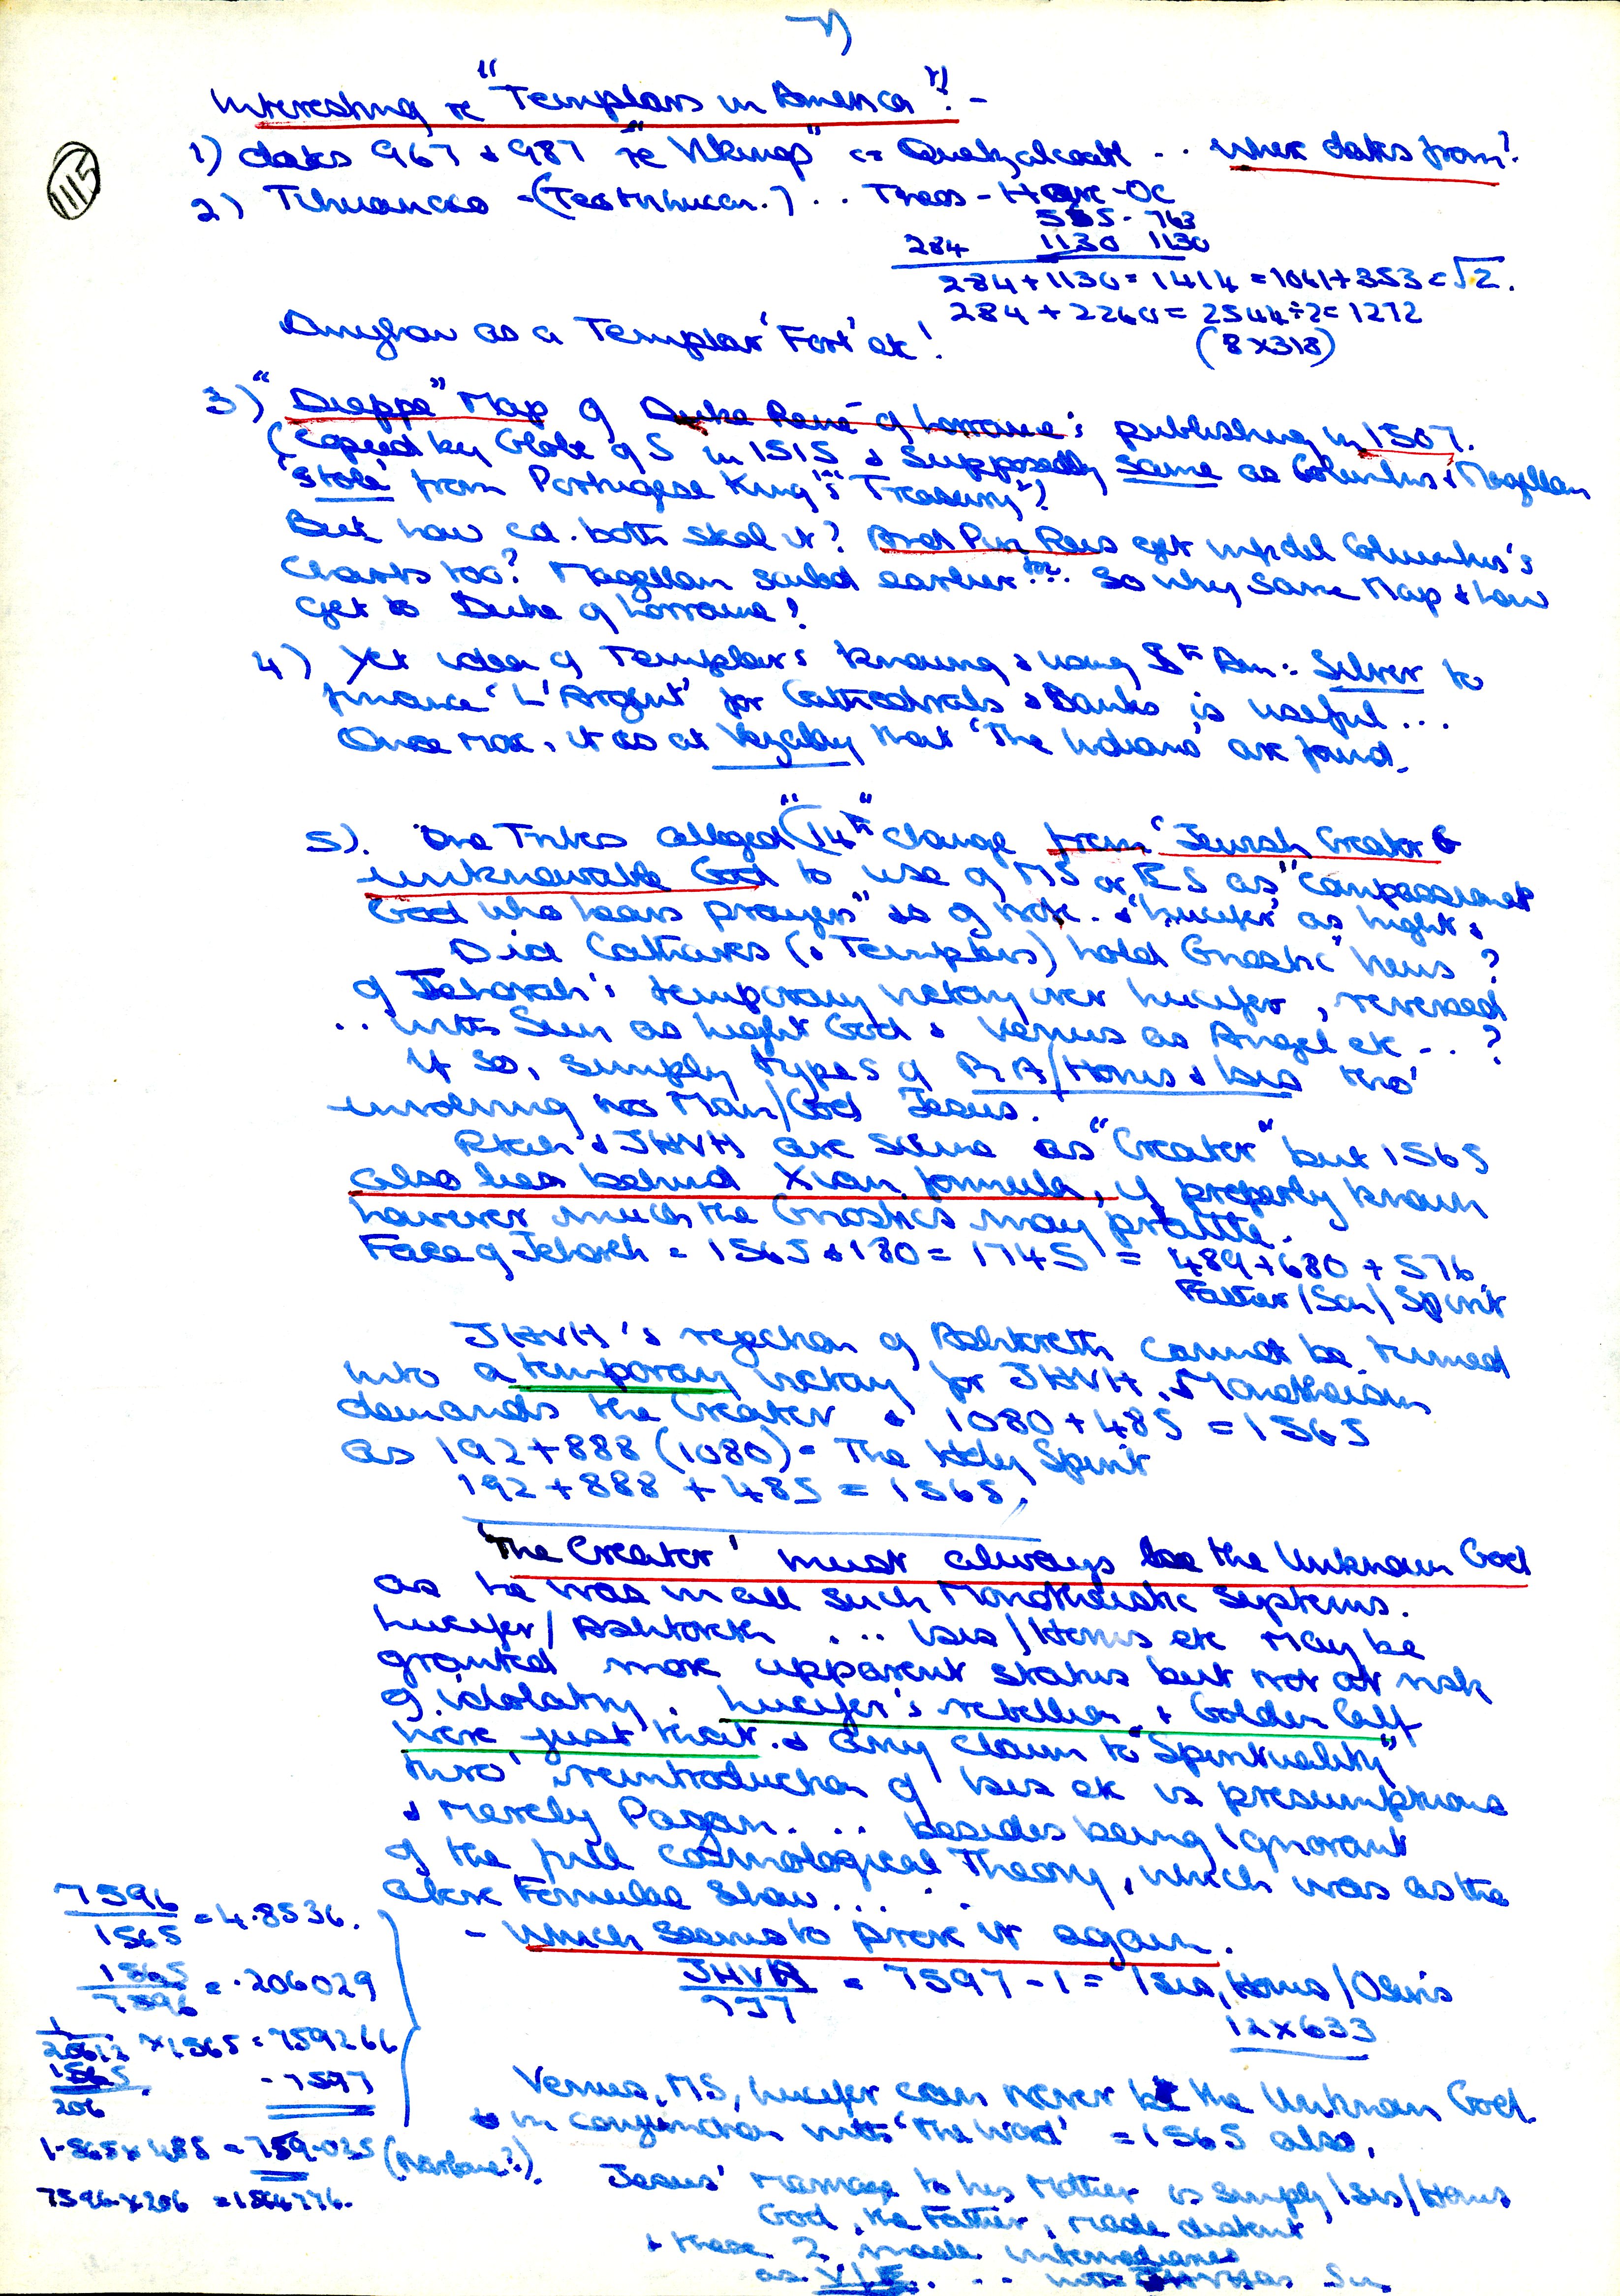 V)
Interesting re "Templars in America"? -
1115
1) dates 967 & 987 re "Vikings" as Quetzalcoatl .. where dates from?
2) Tihuanaco - (Teotihuacan.) .. Theos - Hape - Oc
585 - 763
284 1130 1130
284 + 1130 = 1414 = 1061 + 353 = √2.
284 + 2260 = 2544 ÷ 2 = 1272
(8 x 318)
as a Templar 'Fort' etc!
3) "Dieppe" Map of Duke René of Lorraine's publishing in 1507.
(Copied by Globe of S in 1515 & supposedly same as Columbus & Magellan
'stole' from Portugese King's "Treasury")?
But how cd. both steal it? And Piri Reis get Columbus's
Charts too? Magellan sailed earlier ... So why same Map & how
get to Duke of Lorraine?
4) Yet idea of Templars knowing & using Sth Am: Silver to
finance 'L'Argent' for Cathedrals & Banks is useful...
Once more, it is at Vezelay that 'the Indians' are found.
5). One Tribes alleged "(14th" change from 'Jewish Creator &
unknowable God to use of MS or ES as "compassionate
God who hears prayers" is of note. & 'Lucifer' as light &
Did Cathares (& Templars) hold Gnostic views?
of Jehovah's temporary victory over Lucifer, reversed
.. with Sun as Light God & Venus as Angel etc .. ?
If so, simply types of RA/Horus & Isis tho'
involving no Man/God Jesus.
Ptah & JHVH are same as "Creator" but 1565
also lies behind Xian formula, if properly known
however much the Gnostics may prattle.
Face of Jehovah = 1565 & 180 = 1745 = 489 + 680 + 576.
Father/Son/Spirit
JHVH's rejection of Ashtoreth cannot be turned
into a temporary victory for JHVH. & Monotheism
demands the Creator & 1080 + 485 = 1565
as 192 + 888 (1080) = The Holy Spirit
192 + 888 + 485 = 1565.
'The Creator' must always be the Unknown God
as he was in all such Monotheistic Systems.
Lucifer/Ashtoreth ... Isis/Horus etc may be
granted more apparent status but not at risk
of idolatry. Lucifer's rebellion & Golden Calf
were just that. & any claim to "Spirituality"
thro' reintroduction of Isis etc is presumptuous
& merely Pagan. ... besides being ignorant
of the full cosmological Theory, which was as the
above Formulae show...
- Which seems to prove it again.
JHVH/737 = 7597 - 1 = Isis, Horus/Osiris
12 x 633
7596/1565 = 4.8536.
1565/7596 = .206029
1/20612 x 1565 = 759266
1565/206 = 7597
1.565 x 485 = 759.025
7596 x 206 = 1564776.
Venus, MS, Lucifer can never be the Unknown God.
in conjunction with 'The Word' = 1565 also,
Jesus' marriage to his Mother is simply Isis/Horus
God, the Father, made distant
& these 2 made intermediaries
as